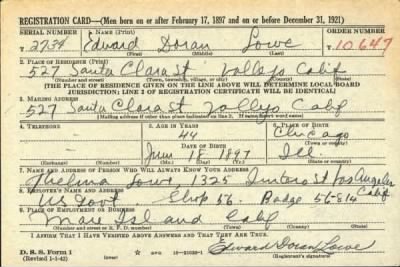 REGISTRATION CARD—(Men born on or after February 17, 1897 and on or before December 31, 1921)
SERIAL NUMBER 1. NAME (Print) ORDER NUMBER
T 2734 Edward Doran Lowe T 10,647
(First) (Middle) (Last)
2. PLACE OF RESIDENCE (Print)
527 Santa Clara St Vallejo Calif
(Number and street) (Town, township, village, or city) (County) (State)
[THE PLACE OF RESIDENCE GIVEN ON THE LINE ABOVE WILL DETERMINE LOCAL BOARD
JURISDICTION; LINE 2 OF REGISTRATION CERTIFICATE WILL BE IDENTICAL]
3. MAILING ADDRESS
527 Santa Clara St Vallejo Calif
[Mailing address if other than place indicated on line 2. If same insert word same]
4. TELEPHONE 5. AGE IN YEARS 6. PLACE OF BIRTH
44 Chicago
DATE OF BIRTH (Town or county)
June 18 1897 Ill
(Exchange) (Number) (Mo.) (Day) (Yr.) (State or country)
7. NAME AND ADDRESS OF PERSON WHO WILL ALWAYS KNOW YOUR ADDRESS
Lowe, 1325 St Los Angeles Calif
8. EMPLOYER'S NAME AND ADDRESS
US Govt Shop 56 Badge 56-814
9. PLACE OF EMPLOYMENT OR BUSINESS
Mare Island Calif
(Number and street or R. F. D. number) (Town) (County) (State)
I AFFIRM THAT I HAVE VERIFIED ABOVE ANSWERS AND THAT THEY ARE TRUE.
D. S. S. Form 1
(Revised 1-1-42) Edward Doran Lowe
(Registrant's signature)